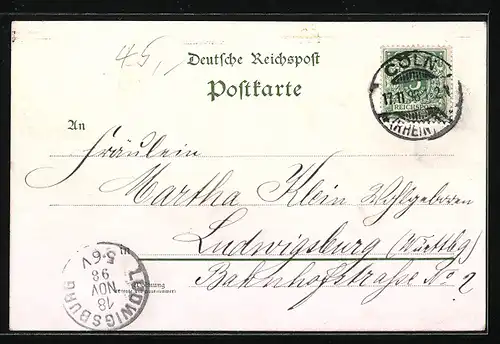 45,
Deutsche Reichspost
Postkarte
CÖLN
17.11.98
(RHEIN)
REICHSPOST
An
Fräulein
Martha Klein Wohlgeboren
in Ludwigsburg (Württbg)
Bahnhofstraße No 2
LUDWIGSBURG
18
NOV
98
5-6V